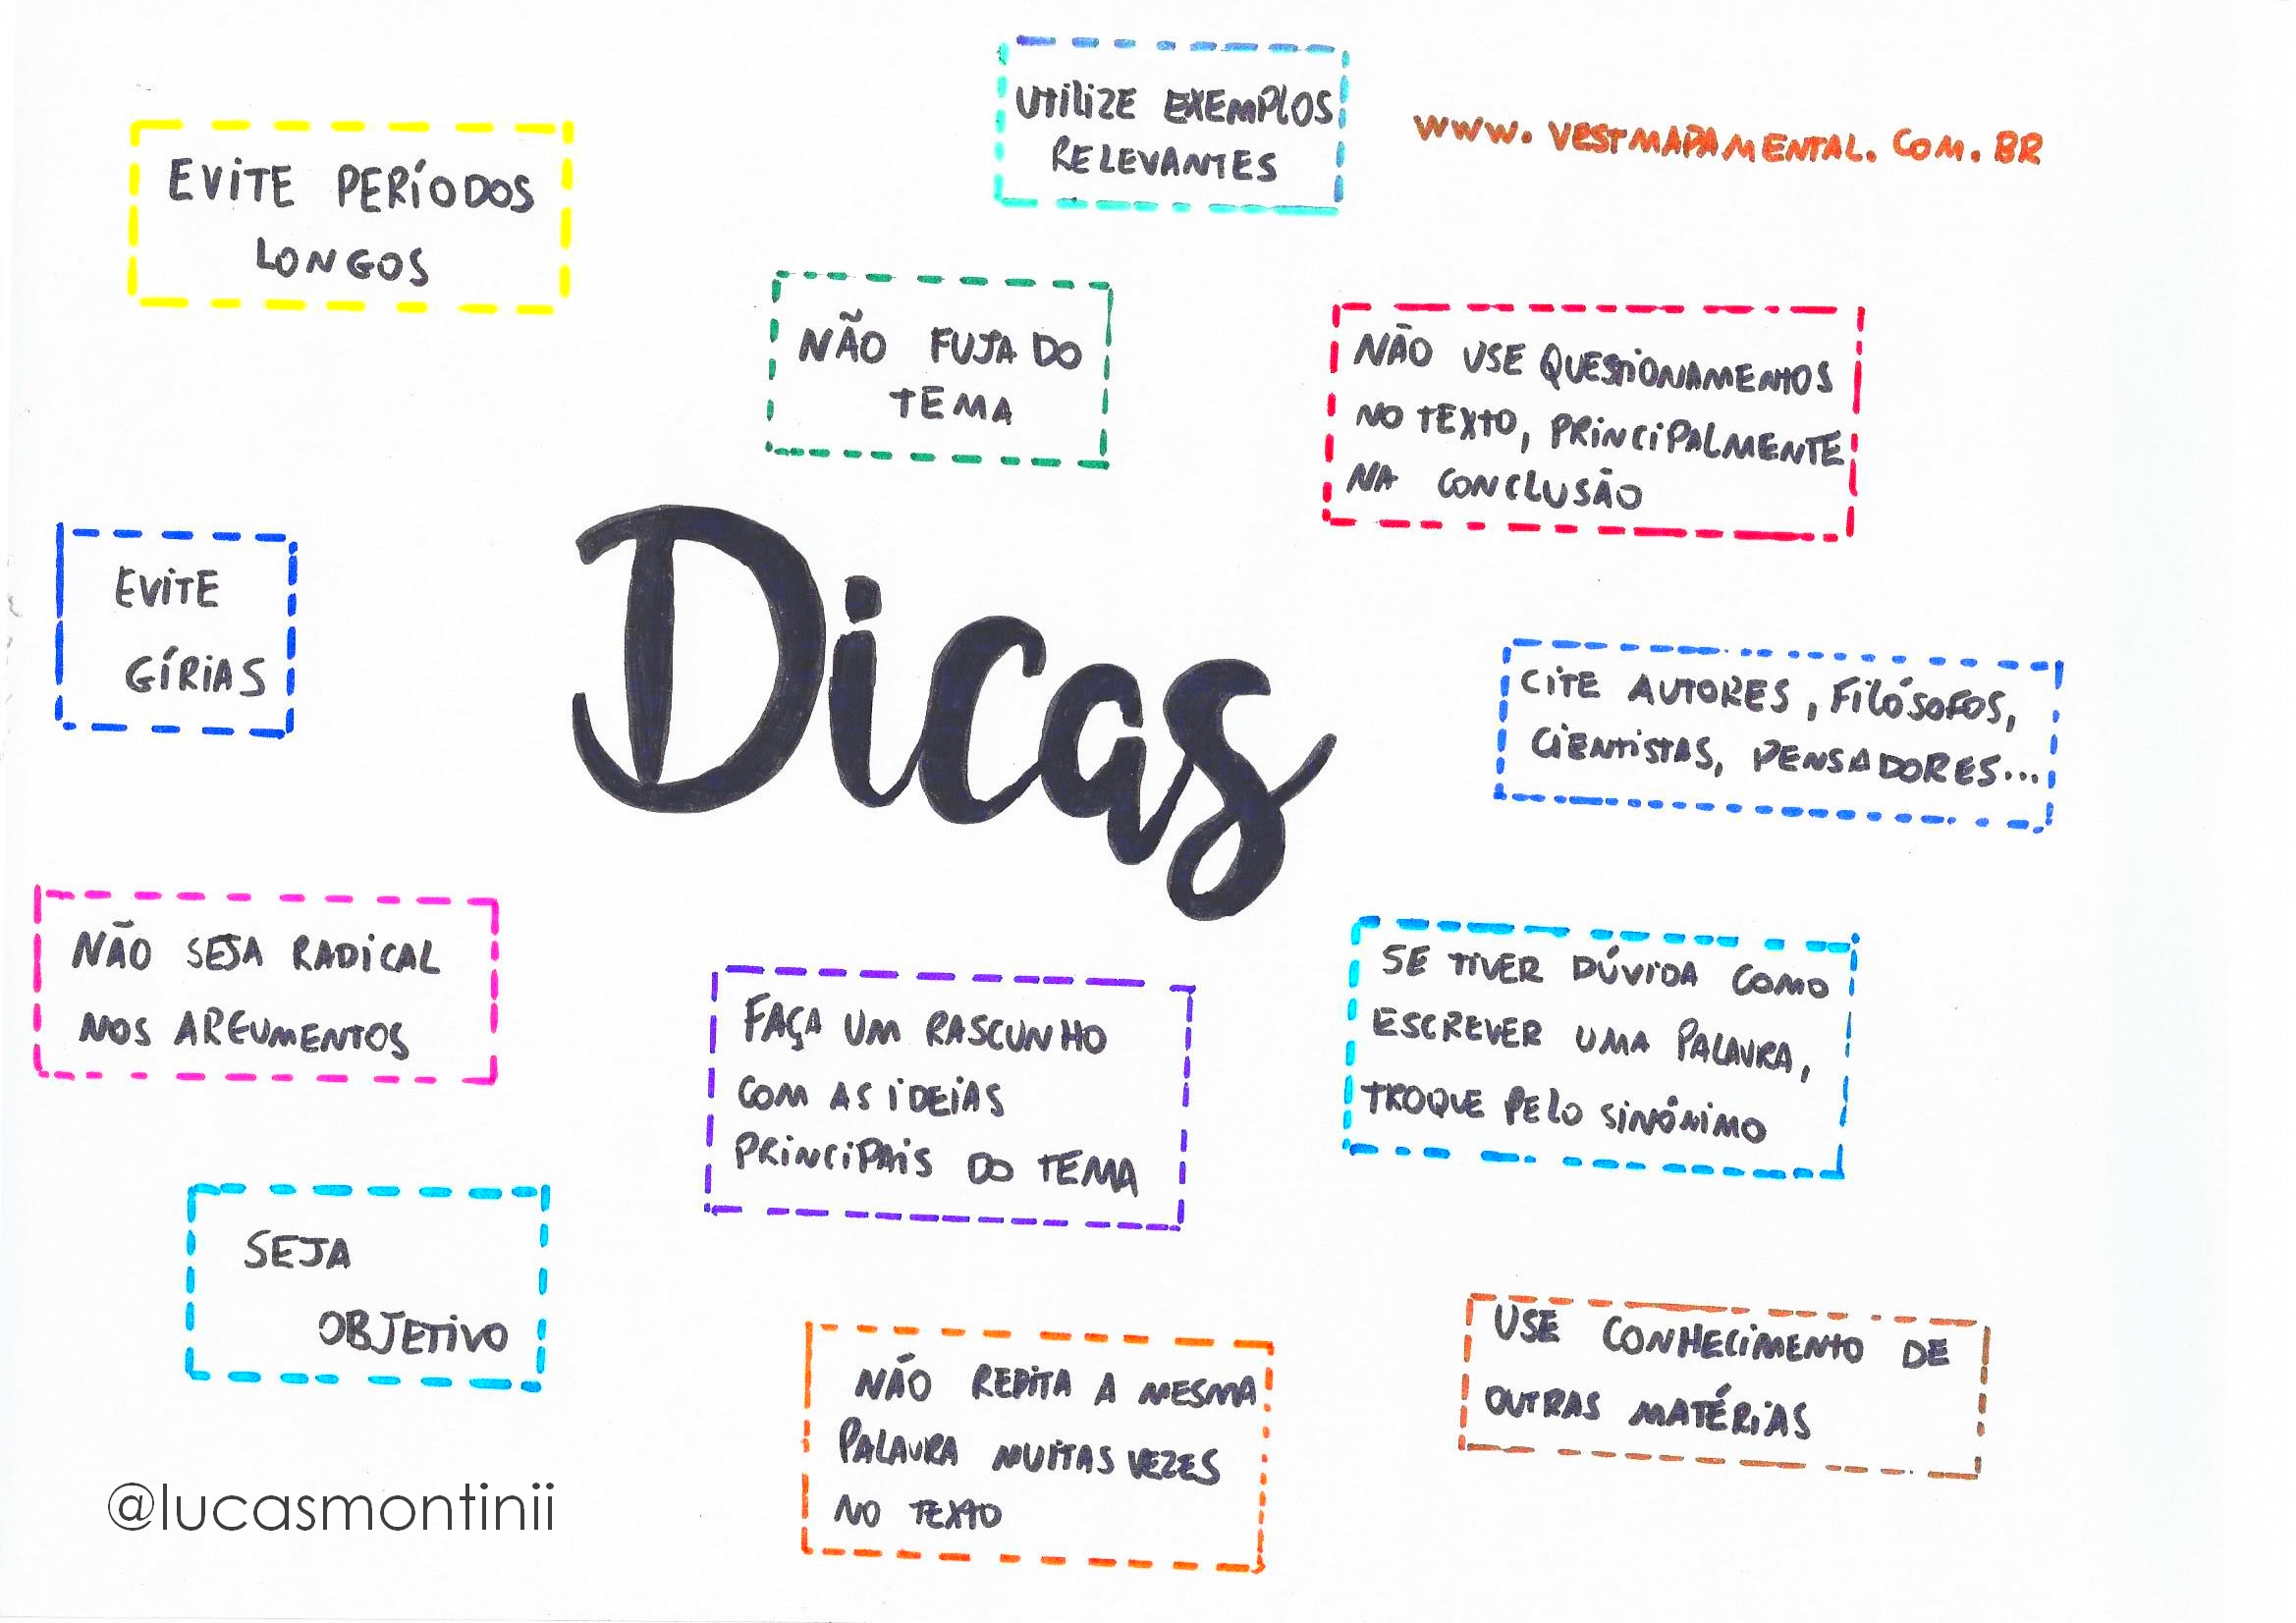 UTILIZE EXEMPLOS
RELEVANTES
WWW.VESTMAPAMENTAL.COM.BR
EVITE PERÍODOS
LONGOS
NÃO FUJA DO
TEMA
NÃO USE QUESTIONAMENTOS
NO TEXTO, PRINCIPALMENTE
NA CONCLUSÃO
EVITE
GÍRIAS
Dicas
CITE AUTORES, FILÓSOFOS,
CIENTISTAS, PENSADORES...
NÃO SEJA RADICAL
NOS ARGUMENTOS
FAÇA UM RASCUNHO
COM AS IDEIAS
PRINCIPAIS DO TEMA
SE TIVER DÚVIDA COMO
ESCREVER UMA PALAVRA,
TROQUE PELO SINÔNIMO
SEJA
OBJETIVO
NÃO REPITA A MESMA
PALAVRA MUITAS VEZES
NO TEXTO
USE CONHECIMENTO DE
OUTRAS MATÉRIAS
@lucasmontinii